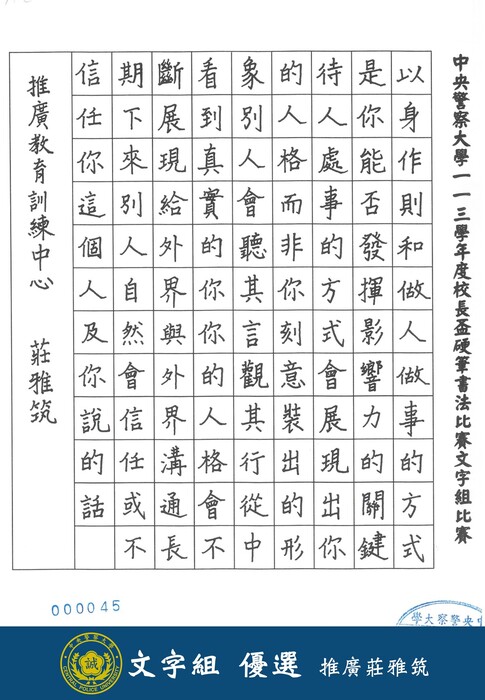 中央警察大學一一三學年度校長盃硬筆書法比賽文字組比賽
以身作則和做人做事的方式
是你能否發揮影響力的關鍵
待人處事的方式會展現出你
的人格而非你刻意裝出的形
象別人會聽其言觀其行從中
看到真實的你你的人格會不
斷展現給外界與外界溝通長
期下來別人自然會信任或不
信任你這個人及你說的話
推廣教育訓練中心 莊雅筑
000045
中央警察大學
誠
CENTRAL POLICE UNIVERSITY
文字組 優選 推廣莊雅筑